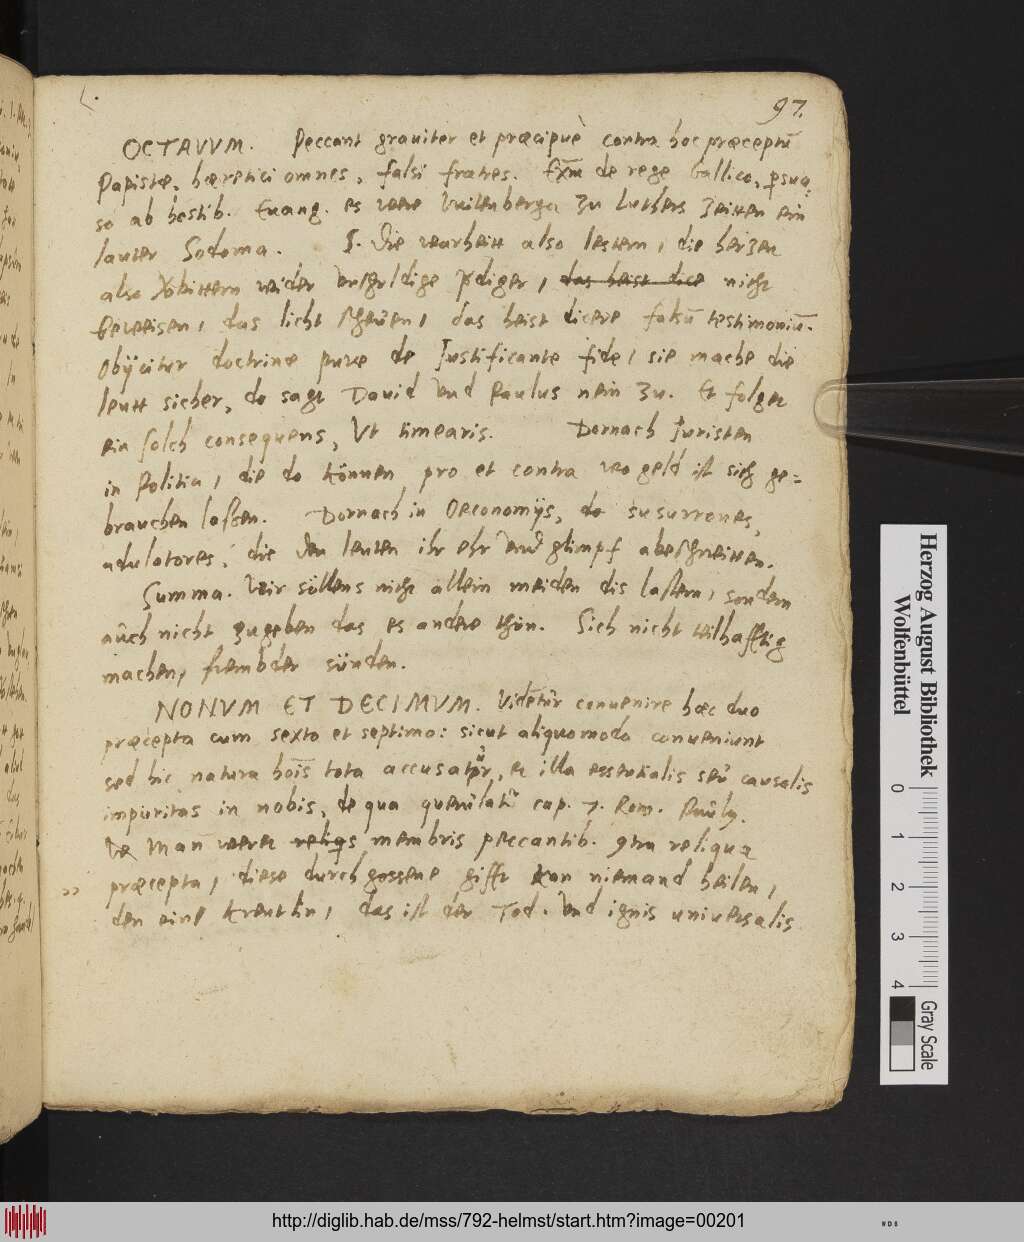 97.
OCTAVVM. Peccant grauiter et præcipuè contra hoc præceptū
Papistæ, hæretici omnes, falsi fratres. Exm̄ de rege Gallico, psua
so ab hostib. Euang. es were Vuitenberga zu Luthers Zeitten ein
lauter Sodoma. S. Die warheitt also lestern, die herzen
also wider vnschuldige prediger, das heist dice nicht
beweisen, das licht scheuen, das heist dicere falsū testimoniū.
Obijcitur doctrinæ puræ de Justificante fide, sie mache die
leutt sicher, do sagt Dauid vnd Paulus nein zu. Et folget
ein solch consequens, Vt timearis. Dornach Juristen
in Politia, die do können pro et contra wo geld ist sich ge=
brauchen lassen. Dornach in Oeconomijs, do susurrones,
adulatores, die den leuten ihr ehr vnd glimpf abschneitten.
Summa. Wir söllens nicht allein meiden dis lastern, sondern
auch nicht zugeben das es andere thun. Sich nicht teilhafftig
machen, frembder sünden.
NONVM ET DECIMVM. Videtur conuenire hæc duo
præcepta cum sexto et septimo: sicut aliquomodo conueniunt
sed hic natura hoīs tota accusatur, et illa essentialis seu causalis
impuritas in nobis, de qua cap. 7. Rom.
man membris peccantib. reliqua
præcepta, diese durchgossene gifft kan niemand heilen,
den eine kreutlin, das ist der Tod. Vnd ignis uniuersalis
Herzog August Bibliothek
Wolfenbüttel
0 1 2 3 4
Gray Scale
http://diglib.hab.de/mss/792-helmst/start.htm?image=00201